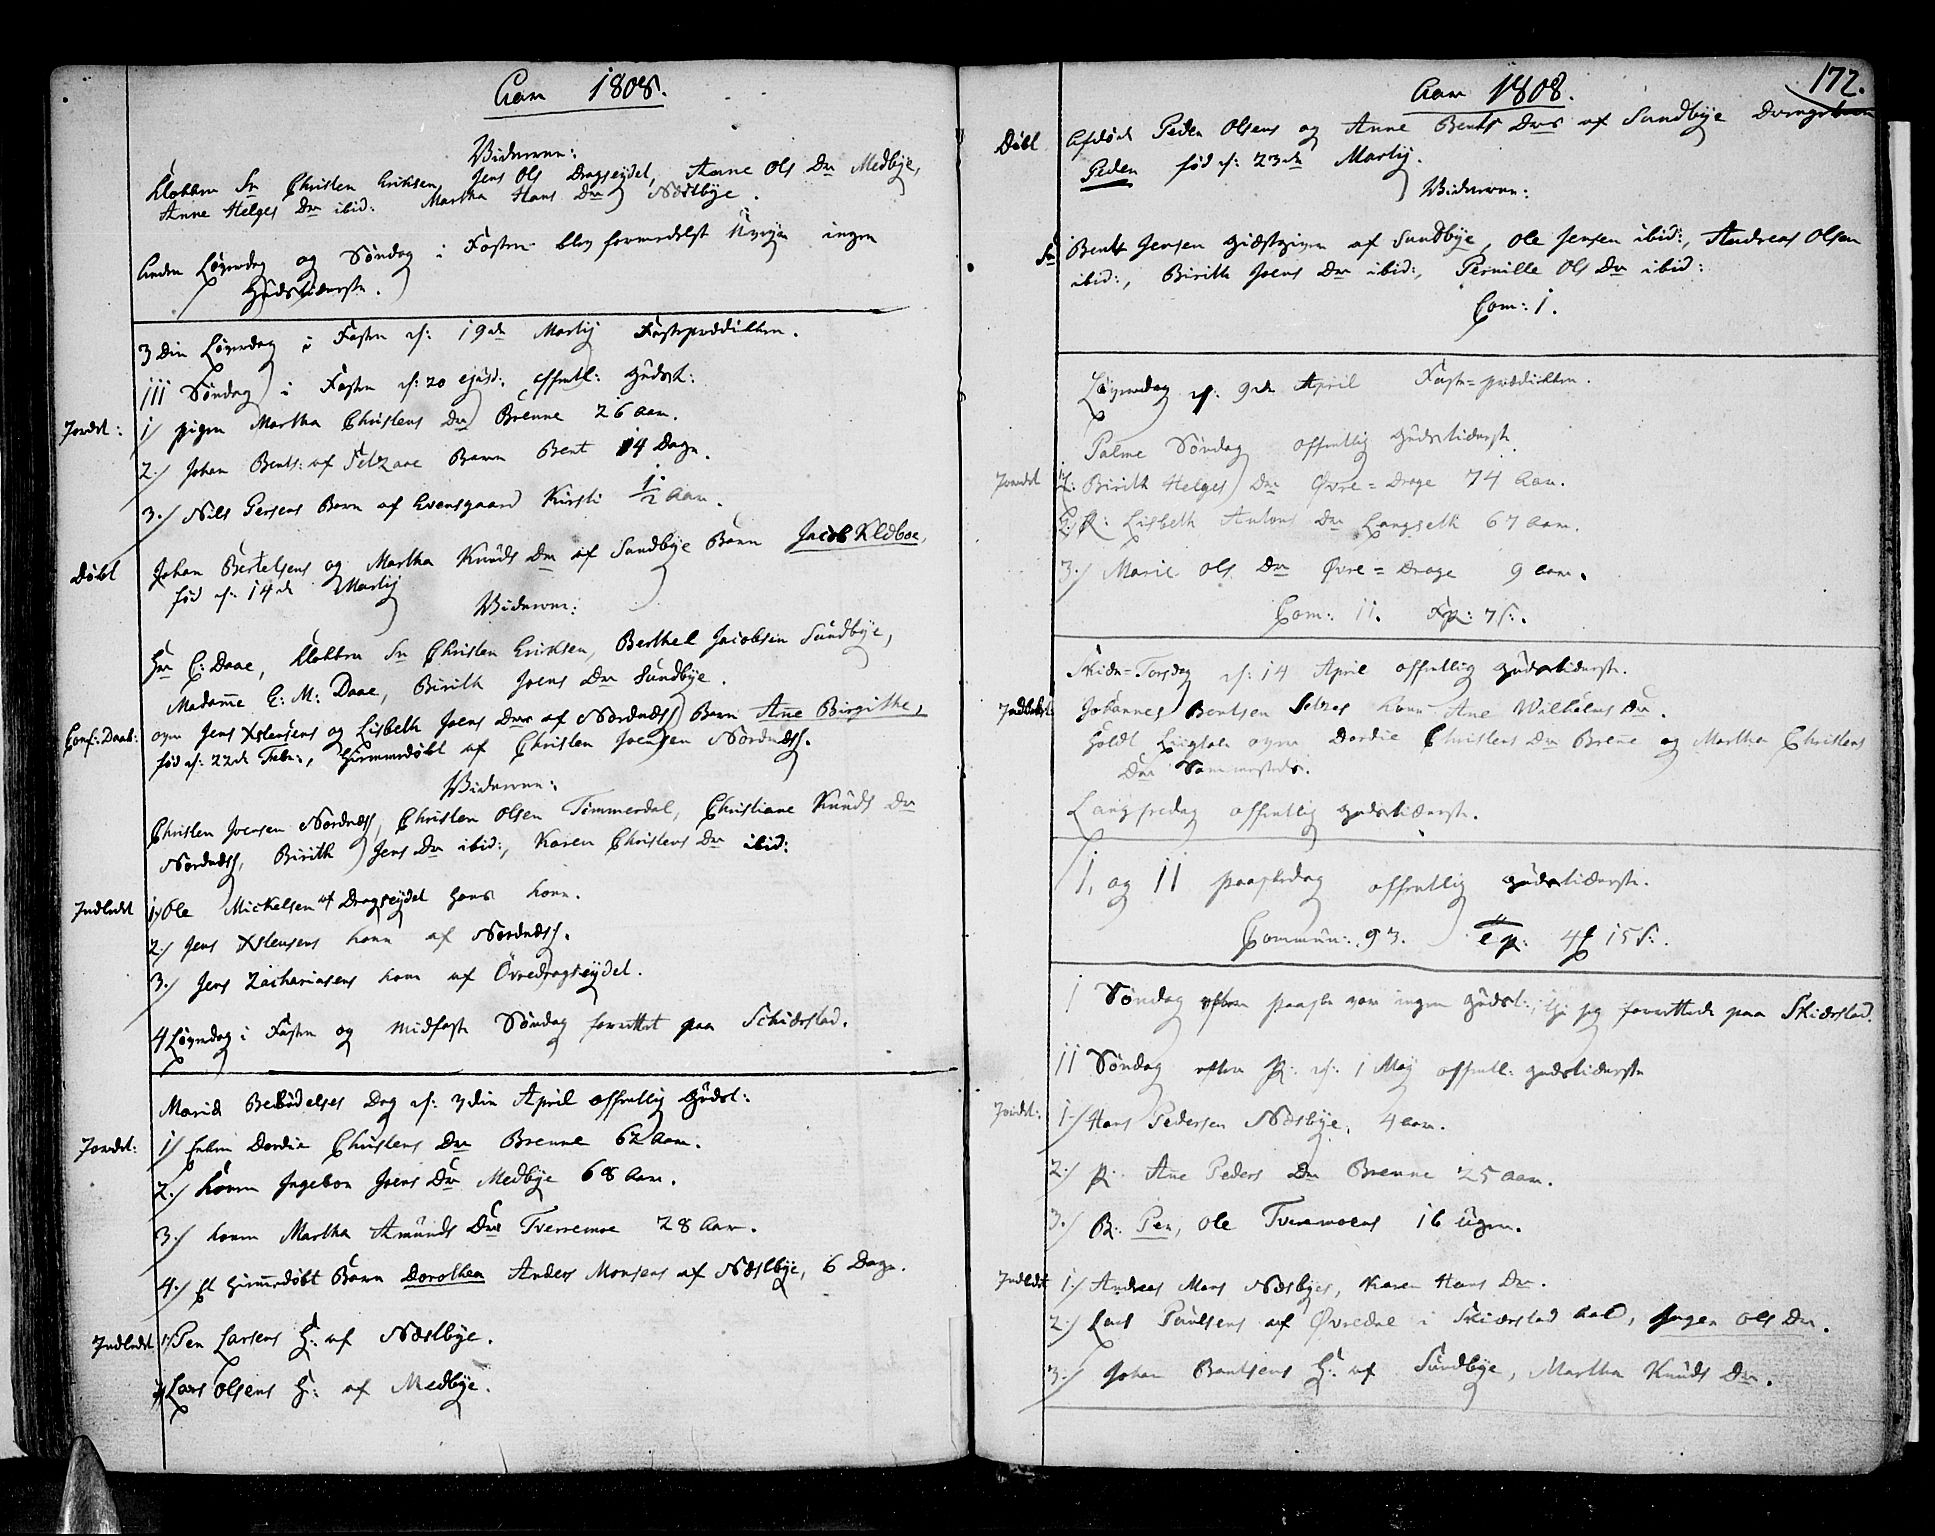 Aar 1808.
Vidnerne:
Klokker Sr Christen Eriksen, Jens Ols Dragseydet, Anne Ols Dr Medbye,
Anne Helges Dr ibid: Martha Hans Dr Næstbye.
Anden Løverdag og Søndag i Fasten blev formedelst Uvejr ingen
Gudstieneste.
3die Løverdag i Fasten d: 19de Martij Fasteprædikken.
III Søndag i Fasten d: 20 ejusd: offentl: Gudst:
Jordet: 1/ pigen Martha Christens Dr Brenne 26 Aar.
2./ Johan Bents: af Setzaae Barn Bent 14 Dage.
3./ Nils Persens Barn af Evensgaard Kirsti 1/2 Aar.
Døbt Johan Bertelsens og Martha Knuds Dr af Sundbye Barn Jacob Klæboe,
fød d: 14de Martij
Vidnerne:
Hr C: Daae, Klokker Sr Christen Eriksen, Berthel Jacobsen Sundbye,
Madame E: M: Daae, Birith Joens Dr Sundbye.
Conf: Daab: ogsaa Jens Xstensens og Lisbeth Joens Drs af Nordnæss Barn Ane Birgithe,
fød d: 22de Febr:, Hiemmedøbt af Christen Joensen Nordnæss.
Vidnerne:
Christen Joensen Nordnæss, Christen Olsen Timmerdal, Christiane Knuds Dr
Nordnæss, Birith Jens Dr ibid:, Karen Christens Dr ibid:
Indledt 1./ Ole Mickelsen af Dragseydet hans kone.
2./ Jens Xstensens kone af Nordnæss.
3./ Jens Zachariasens kone af Øvredragseydet.
4 Løverdag i Fasten og midfaste Søndag forrettet paa Schierstad.
Mariæ Bebudelses Dag d: 3die April offentlig Gudst:
Jordet: 1/ Enken Dordie Christens Dr Brenne 62 Aar.
2./ konen Ingebor Joens Dr Medbye 68 Aar.
3./ konen Martha Amunds Dr Tverremoe 28 Aar.
4./ Et hiemedøbt Barn Dorothea Anders Monsens af Næstbye, 6 Dage.
Indledt 1/ Peder Larsens H: af Næstbye.
2/ Lars Olsens H: af Medbye.
Aar 1808.
172.
Døbt Afdøde Peder Olsens og Anne Bents Drs af Sundbye Drengebarn
Peder fød d: 23de Martij.
Vidnerne:
Sr Bent Jensen Giæstgiver af Sundbye, Ole Jensen ibid:, Andreas Olsen
ibid:, Birith Joens Dr ibid:, Pernille Ols Dr ibid:
Com: 1.
Løverdag d: 9de April Faste-prædikken.
Palme Søndag offentlig Gudstieneste.
Jordet 1: Birith Helges Dr Øvre-Drage 74 Aar.
2./ P: Lisbeth Antons Dr Langseth 67 Aar.
3./ Marie Ols Dr Øvre-Drage 9 Aar.
Com: 11. Xp: 7 s:.
Skiær-Torsdag d: 14 April offentlig Gudstieneste.
Indledt Johannes Bentsen Setzes kone Ane Wilhelms Dr.
Holdt ogsaa Dordie Christens Dr Brenne og Martha Christens
Dr
Langfredag offentlig Gudstieneste.
I, og II Paaskedag offentlig Gudstieneste.
Commun: 93. 15 s:.
I Søndag efter Paaske var ingen Gudst: thi jeg forrettede paa Skierstad.
II Søndag efter P: d: 1 Maj offentl: Gudstieneste
Jordet: 1./ Hans Pedersen Næsbye, 4 Aar.
2./ P: Ane Peders Dr Brenne 25 Aar.
3./ B: Per, Ole Tverrmoens 16 Uger.
Indledt 1./ Andreas Mons Næsbyes, Karen Hans Dr.
2./ Lars Poulsens af Øvredal i Skierstad Aal, Inger Ols Dr.
3./ Johan Bertelsens H: af Sundbye, Martha Knuds Dr.